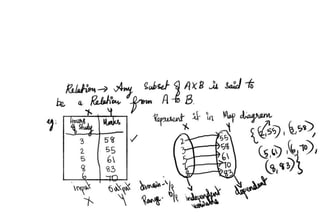 Relation → Any Subset of AXB is said to
be a Relation from A to B.
eg:
X Y
Hours of Study Marks
3 58
2 55
5 61
8 83
6 70
input output
X Y
Represent it in Map diagram
X Y
2 55
3 58
5 61
6 70
8 83
{(2,55), (3,58),
(5,61) (6,70),
(8,83)}
Range - o/p
independent
variable
dependent